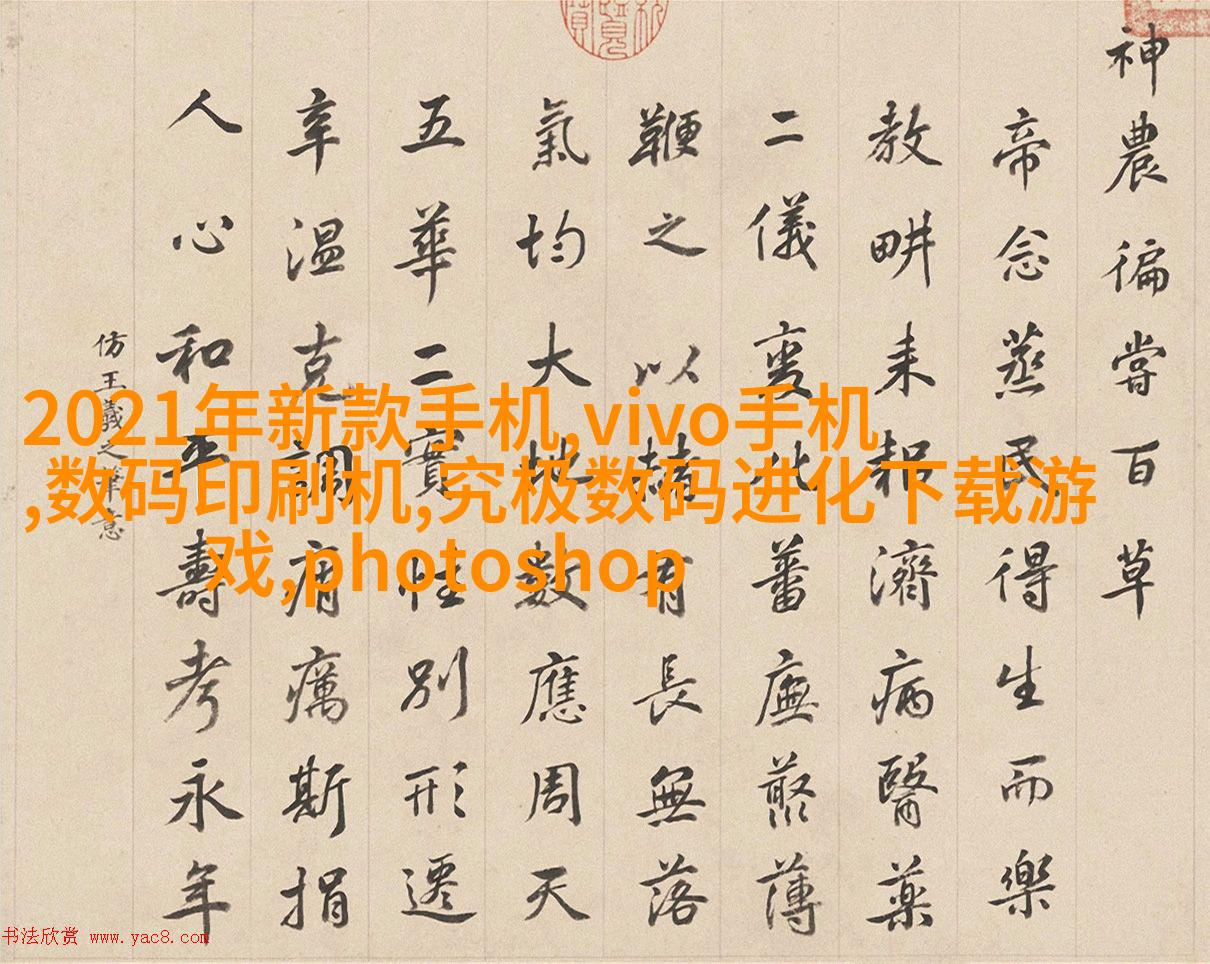 神農徧嘗百草
帝念蒸民得生而樂
教畊耒耜濟病醫藥
二儀變化蕃廡藂薄
鞭之以赭有長無落
氣均大地數應周天
五華二實性別形遷
辛溫克調痟癘斯捐
人心和平壽考永年
仿王羲之筆意
2021年新款手机,vivo手机
,数码印刷机,究极数码进化下载游
戏,photoshop
书法欣赏 www.yac8.com